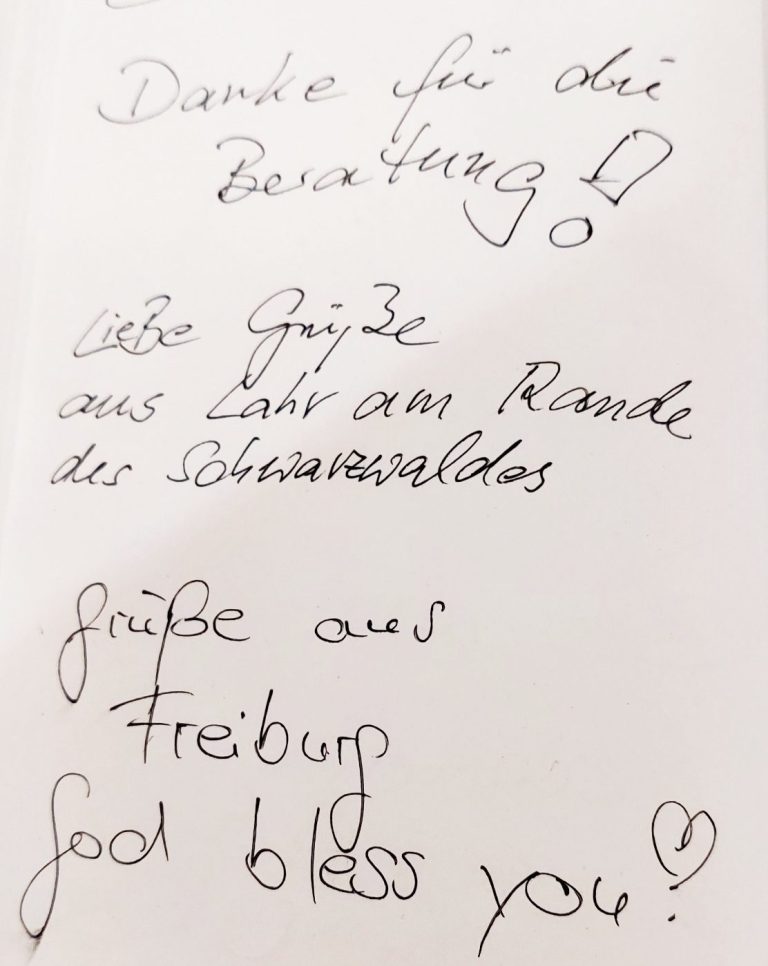 Danke für die
Beratung!
Liebe Grüße
aus Lahr am Rande
des Schwarzwaldes
Grüße aus
Freiburg
God bless you!